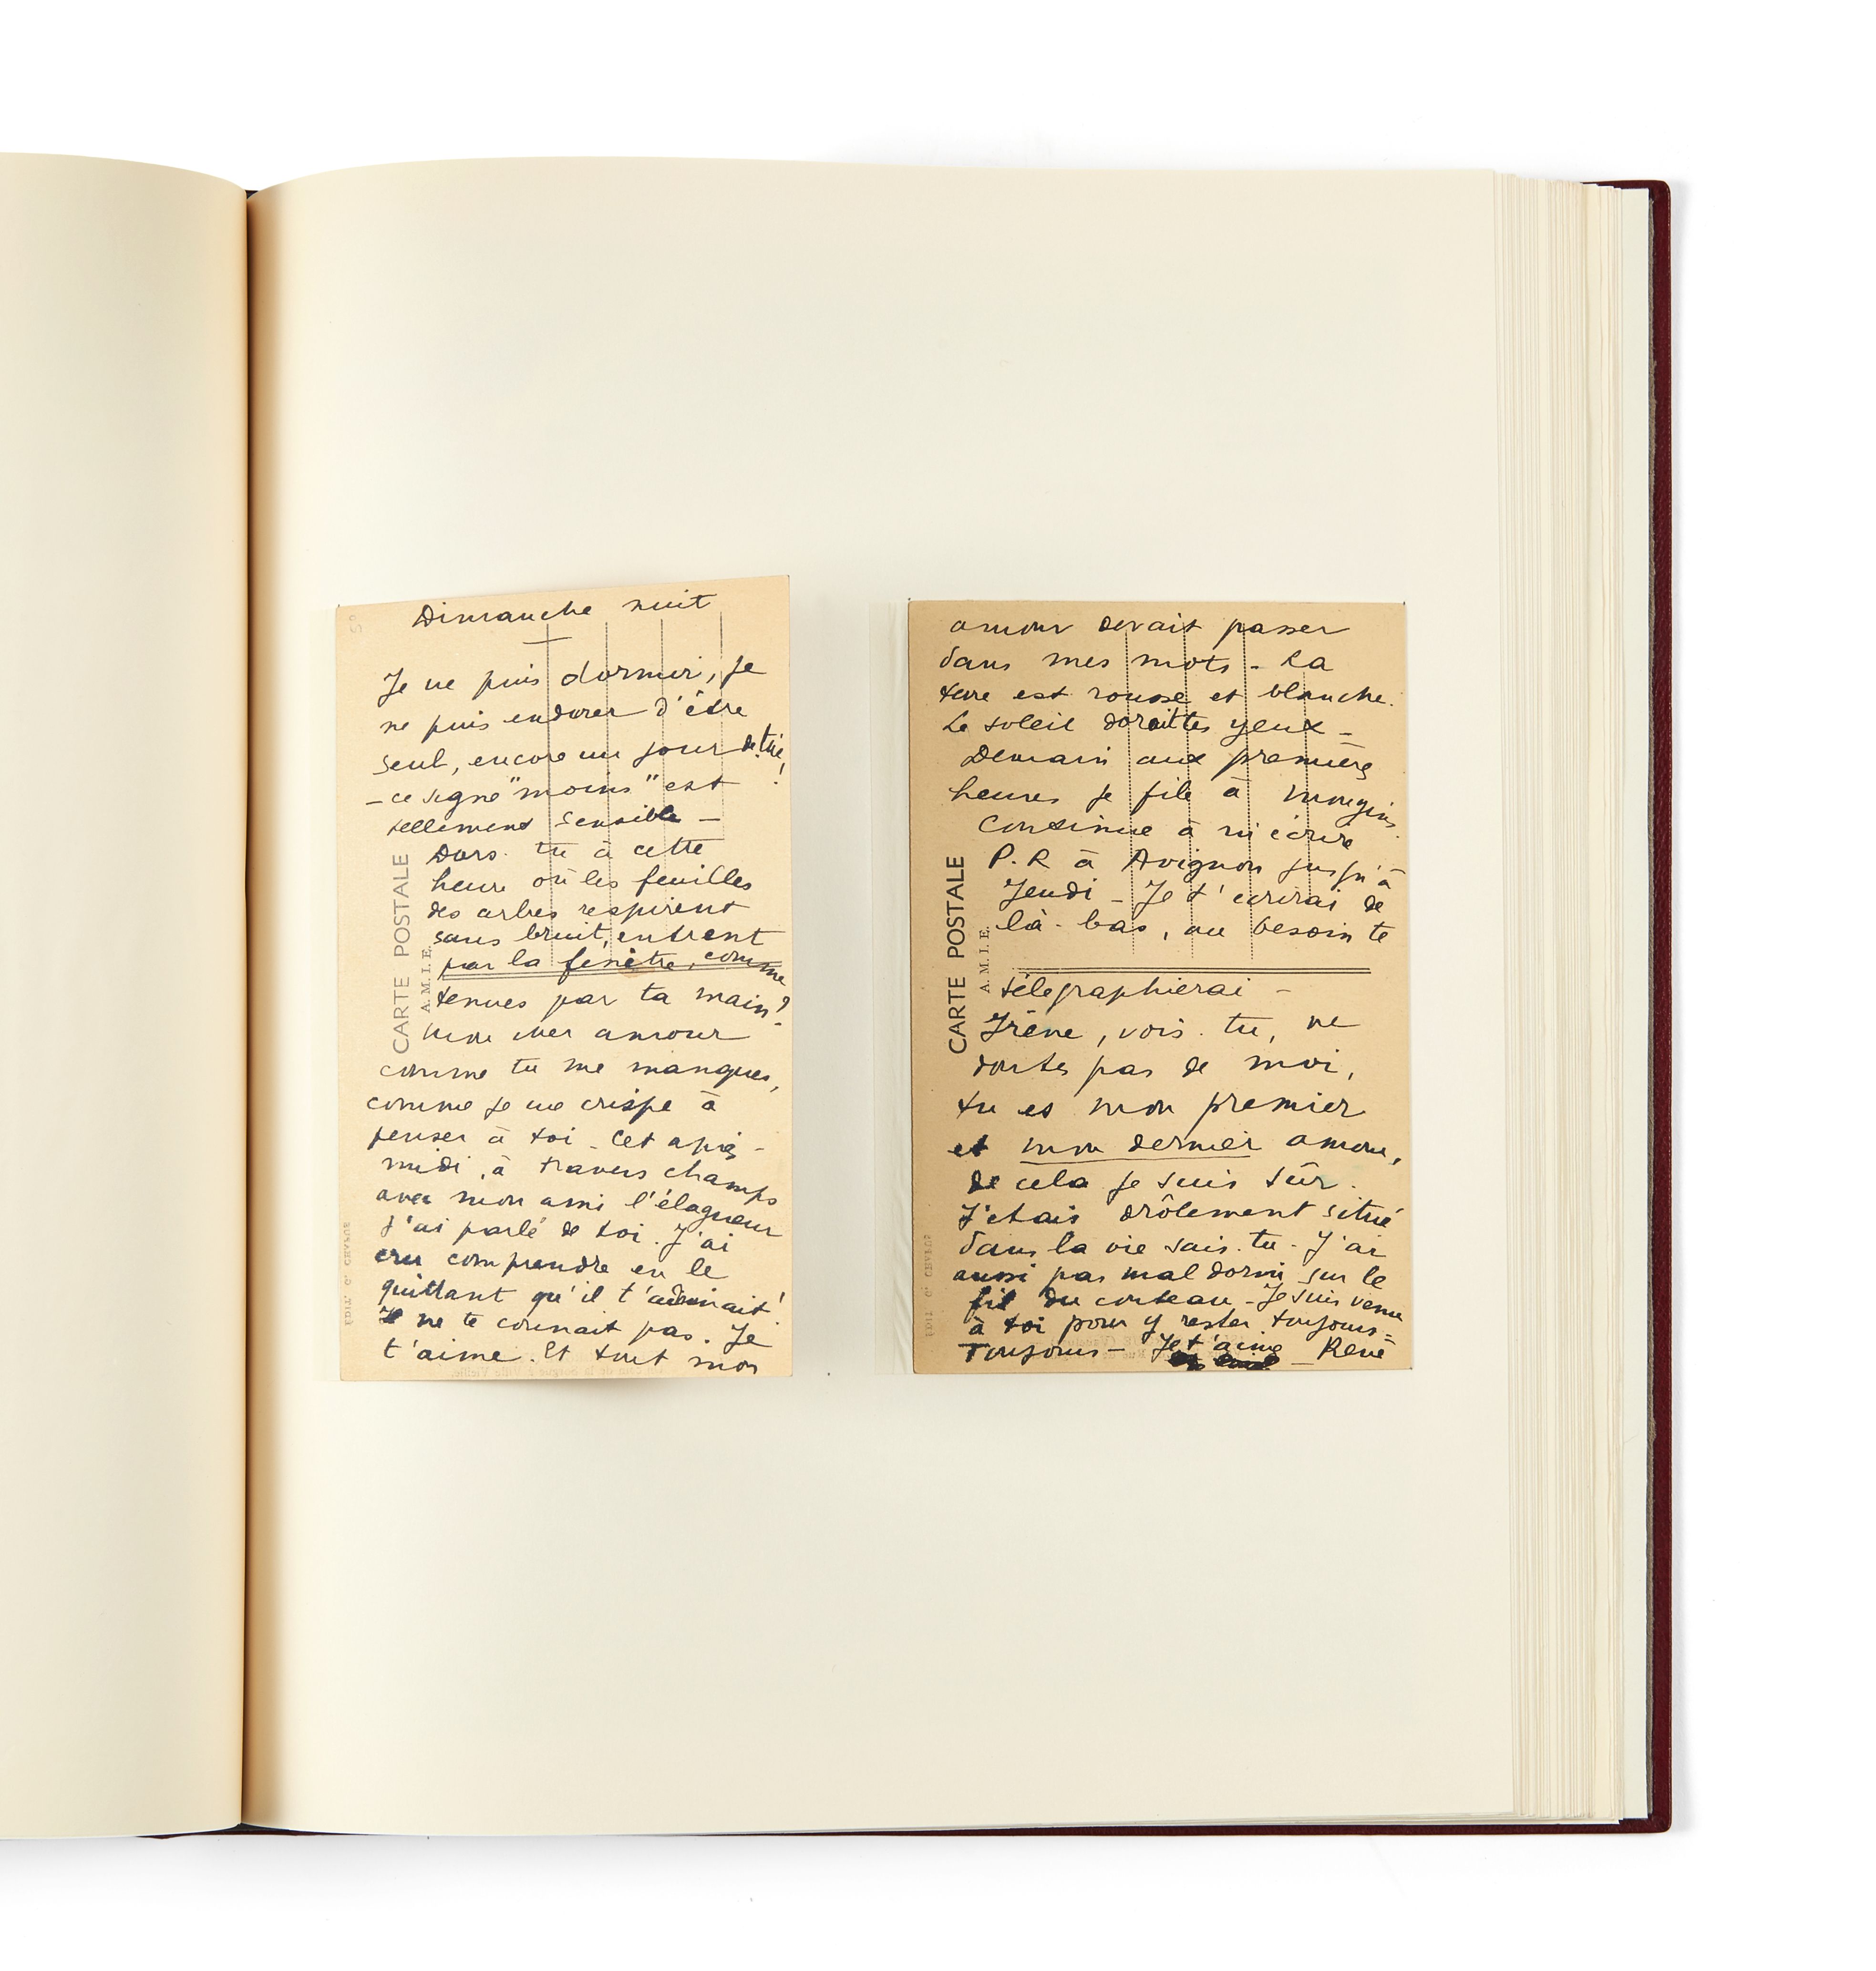 Dimanche nuit
Je ne puis dormir, je
ne puis endurer d'être
seul, encore un jour de tué,
!
– ce signe "moins" est
tellement sensible –
Dors-tu à cette
heure où les feuilles
des arbres respirent
sans bruit, entrent
par la fenêtre, comme
tenues par ta main?
mon cher amour
comme tu me manques,
comme je me crispe à
penser à toi – Cet après-
midi, à travers champs
avec mon ami l'élagueur
j'ai parlé de toi. J'ai
cru comprendre en le
quittant qu'il t'aimait!
Il ne te connait pas. Je
t'aime. Et tout mon
CARTE POSTALE
A. M. I. E.
EDIT. G. CHAPUS
amour devait passer
dans mes mots – La
terre est rousse et blanche.
Le soleil dorait tes yeux –
Demain aux premières
heures je file à Mougins.
Continue à m'écrire
P.R à Avignon jusqu'à
Jeudi – Je t'écrirai de
là-bas, au besoin te
télégraphierai –
Irène, vois-tu, ne
doutes pas de moi,
tu es mon premier
et mon dernier amour,
de cela je suis sûr.
J'étais drôlement situé
dans la vie sais-tu – J'ai
aussi pas mal dormi sur le
fil du couteau – Je suis venu
à toi pour y rester toujours =
Toujours – Je t'aime – René
CARTE POSTALE
A. M. I. E.
EDIT. G. CHAPUS